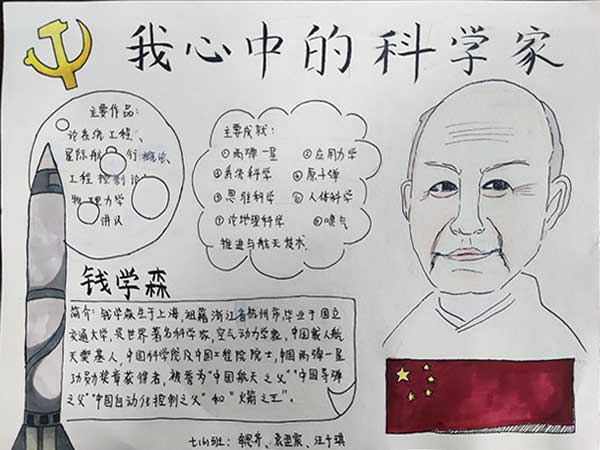 我心中的科学家
主要作品:
论系统工程、
星际航行概论、
工程控制论、
物理力学
讲义
主要成就:
①两弹一星 ②应用力学
③系统科学 ④原子弹
⑤思维科学 ⑥人体科学
⑦论地理科学 ⑧喷气
推进与航天技术
钱学森
简介:钱学森生于上海,祖籍浙江省杭州市,毕业于国立
交通大学,是世界著名科学家,空气动力学家,中国载人航
天奠基人,中国科学院及中国工程院院士,中国两弹一星
功勋奖章获得者,被誉为"中国航天之父""中国导弹
之父""中国自动化控制之父"和"火箭之王"。
班: